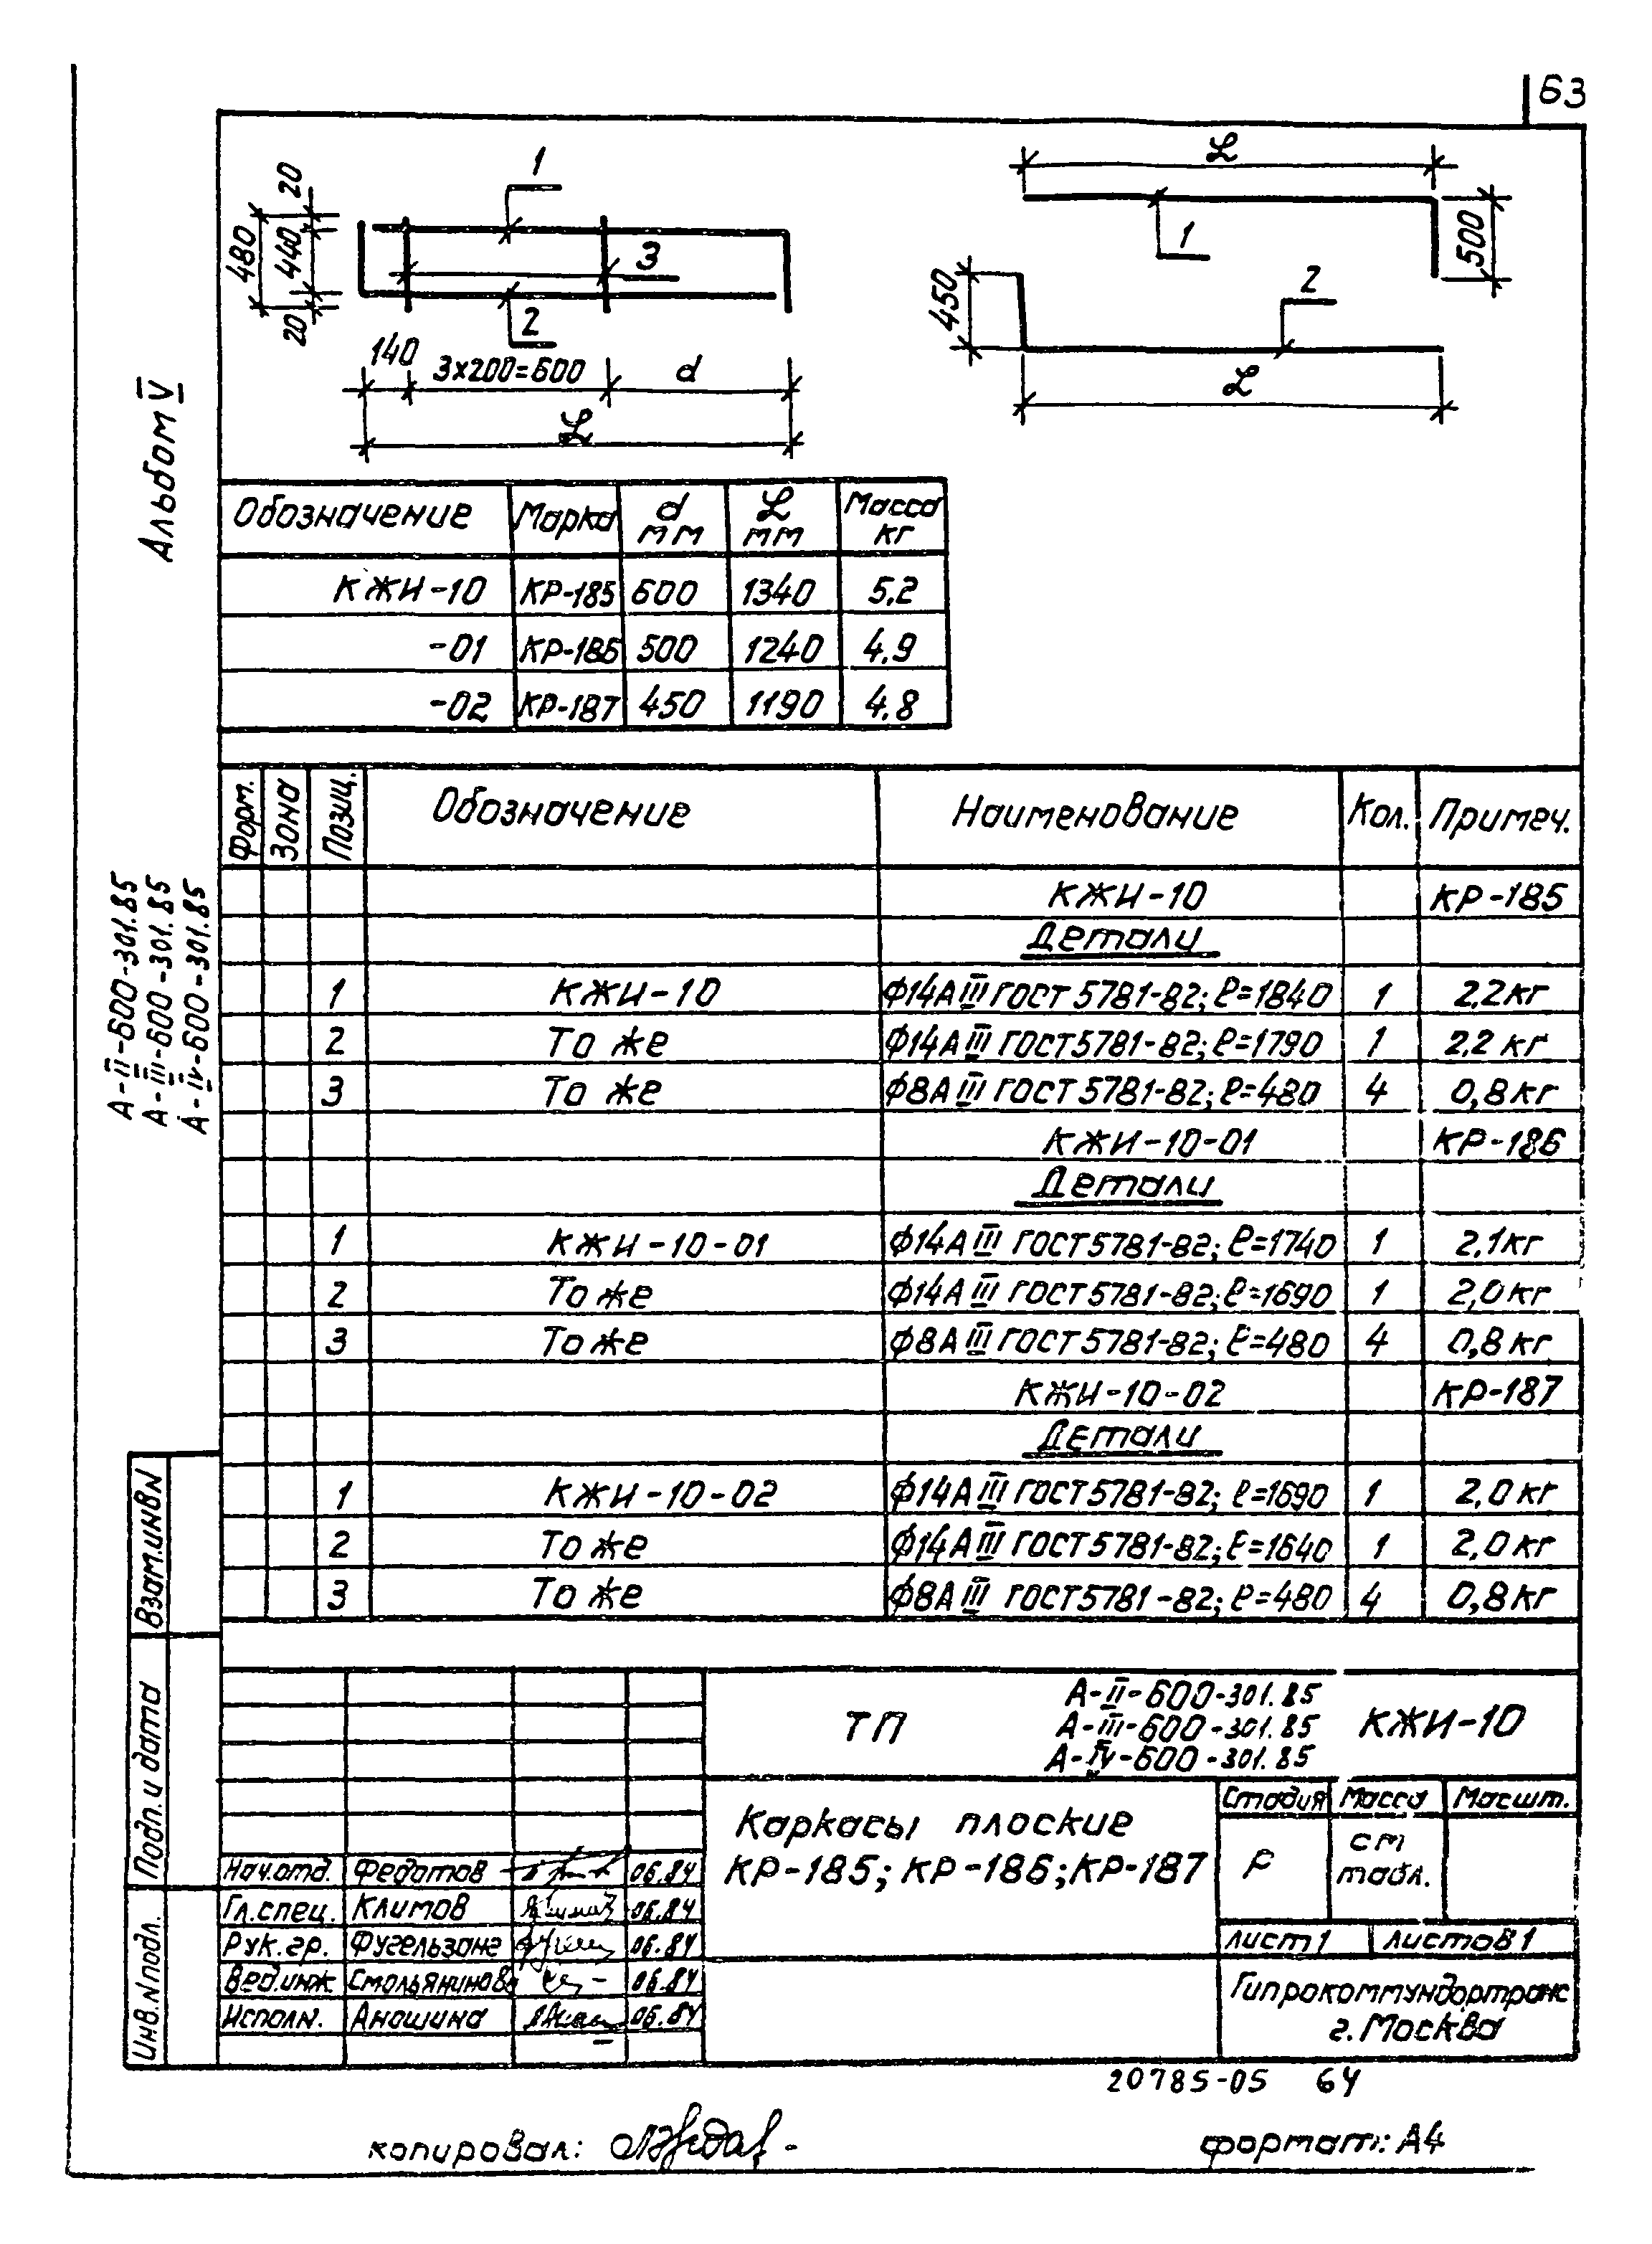 63
20
480
440
20
1
3
2
140
3x200=600
d
L
L
1
500
450
2
L
Альбом V
Обозначение Марка d мм L мм Масса кг
КЖИ-10 КР-185 600 1340 5,2
-01 КР-186 500 1240 4,9
-02 КР-187 450 1190 4,8
Форм. Зона Позиц. Обозначение Наименование Кол. Примеч.
КЖИ-10 КР-185
Детали
1 КЖИ-10 Ф14АIII ГОСТ 5781-82; ℓ=1840 1 2,2кг
2 То же Ф14АIII ГОСТ 5781-82; ℓ=1790 1 2,2 кг
3 То же Ф8АIII ГОСТ 5781-82; ℓ=480 4 0,8кг
КЖИ-10-01 КР-186
Детали
1 КЖИ-10-01 Ф14АIII ГОСТ 5781-82; ℓ=1740 1 2,1кг
2 То же Ф14АIII ГОСТ 5781-82; ℓ=1690 1 2,0кг
3 То же Ф8АIII ГОСТ 5781-82; ℓ=480 4 0,8кг
КЖИ-10-02 КР-187
Детали
1 КЖИ-10-02 Ф14АIII ГОСТ 5781-82; ℓ=1690 1 2,0кг
2 То же Ф14АIII ГОСТ 5781-82; ℓ=1640 1 2,0кг
3 То же Ф8АIII ГОСТ 5781-82; ℓ=480 4 0,8кг
А-II-600-301.85
А-III-600-301.85
А-IV-600-301.85
Взам.инв N
Подп. и дата
Инв. N подл.
ТП
А-II-600-301.85
А-III-600-301.85
А-IV-600-301.85
КЖИ-10
Каркасы плоские
КР-185; КР-186; КР-187
Стадия Масса Масшт.
Р
см
табл.
Лист 1 Листов 1
Гипрокоммундортранс
г. Москва
Нач.отд. Федотов 06.84
Гл.спец. Климов 06.84
Рук.гр. Фугельзанг 06.84
Вед.инж Смольянинова 06.84
Исполн. Аношина 06.84
20785-05 64
копировал:
формат: А4